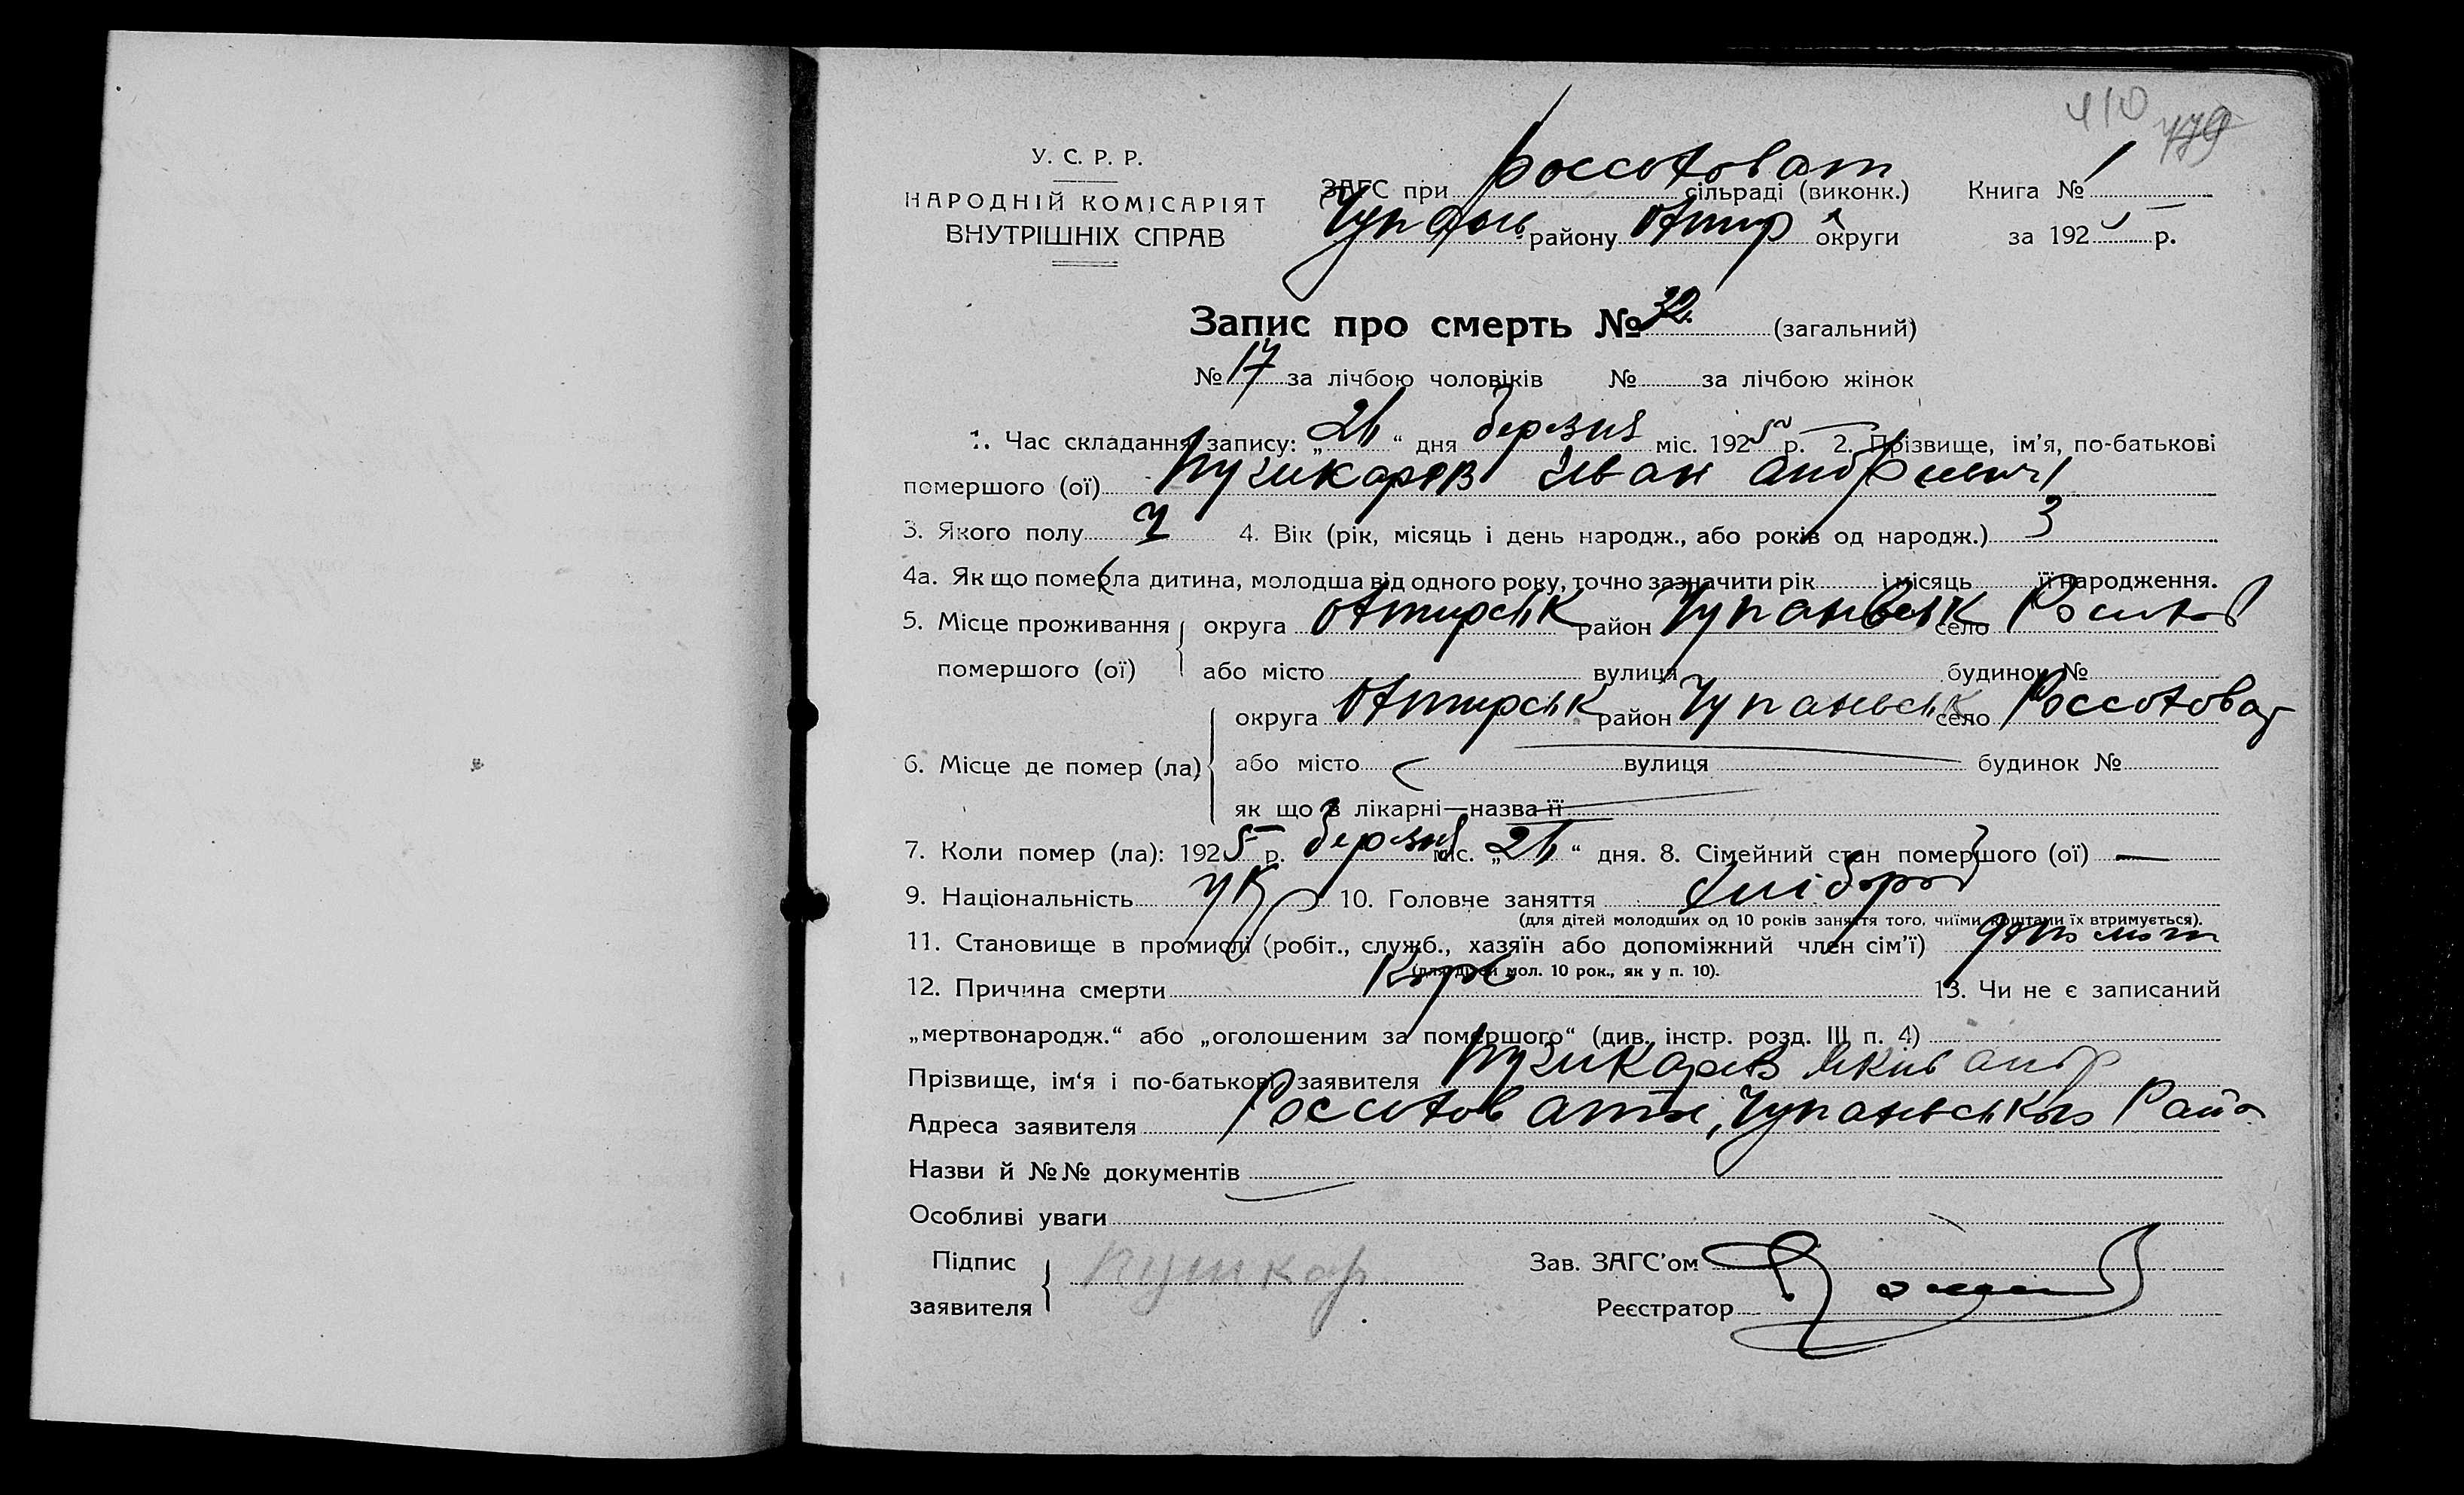 410 779
У. С. Р. Р.
НАРОДНІЙ КОМІСАРІЯТ
ВНУТРІШНІХ СПРАВ
ЗАГС при Россоховат сільраді (виконк.)
району Охтир округи
Книга № 1
за 1925 р.
Запис про смерть № 32. (загальний)
№ 17 за лічбою чоловіків № за лічбою жінок
1. Час складання запису: „26“ дня березня міс. 1925 р. 2. Прізвище, ім’я, по-батькові
помершого (ої) Іван
3. Якого полу Ч 4. Вік (рік, місяць і день народж., або років од народж.) 3
4а. Як що померла дитина, молодша від одного року, точно зазначити рік і місяць її народження.
5. Місце проживання помершого (ої) округа Охтирськ район Чупахівськ село
або місто вулиця будинок №
6. Місце де помер (ла) округа Охтирськ район Чупахівськ село Россоховат
або місто вулиця будинок №
як що в лікарні—назва її
7. Коли помер (ла): 1925 р. березня міс. „26“ дня. 8. Сімейний стан помершого (ої) —
9. Національність Укр 10. Головне заняття хлібороб
(для дітей молодших од 10 років заняття того, чиїми коштами їх втримується).
11. Становище в промислі (робіт., служб., хазяїн або допоміжний член сім’ї)
(для дітей мол. 10 рок., як у п. 10).
12. Причина смерти Кір 13. Чи не є записаний
„мертвонародж.“ або „оголошеним за помершого“ (див. інстр. розд. III п. 4)
Прізвище, ім‘я і по-батькові заявителя Яків Андр
Адреса заявителя Россоховати, Чупахівського Райо
Назви й №№ документів
Особливі уваги
Підпис заявителя Пушкар
Зав. ЗАГС’ом
Реєстратор